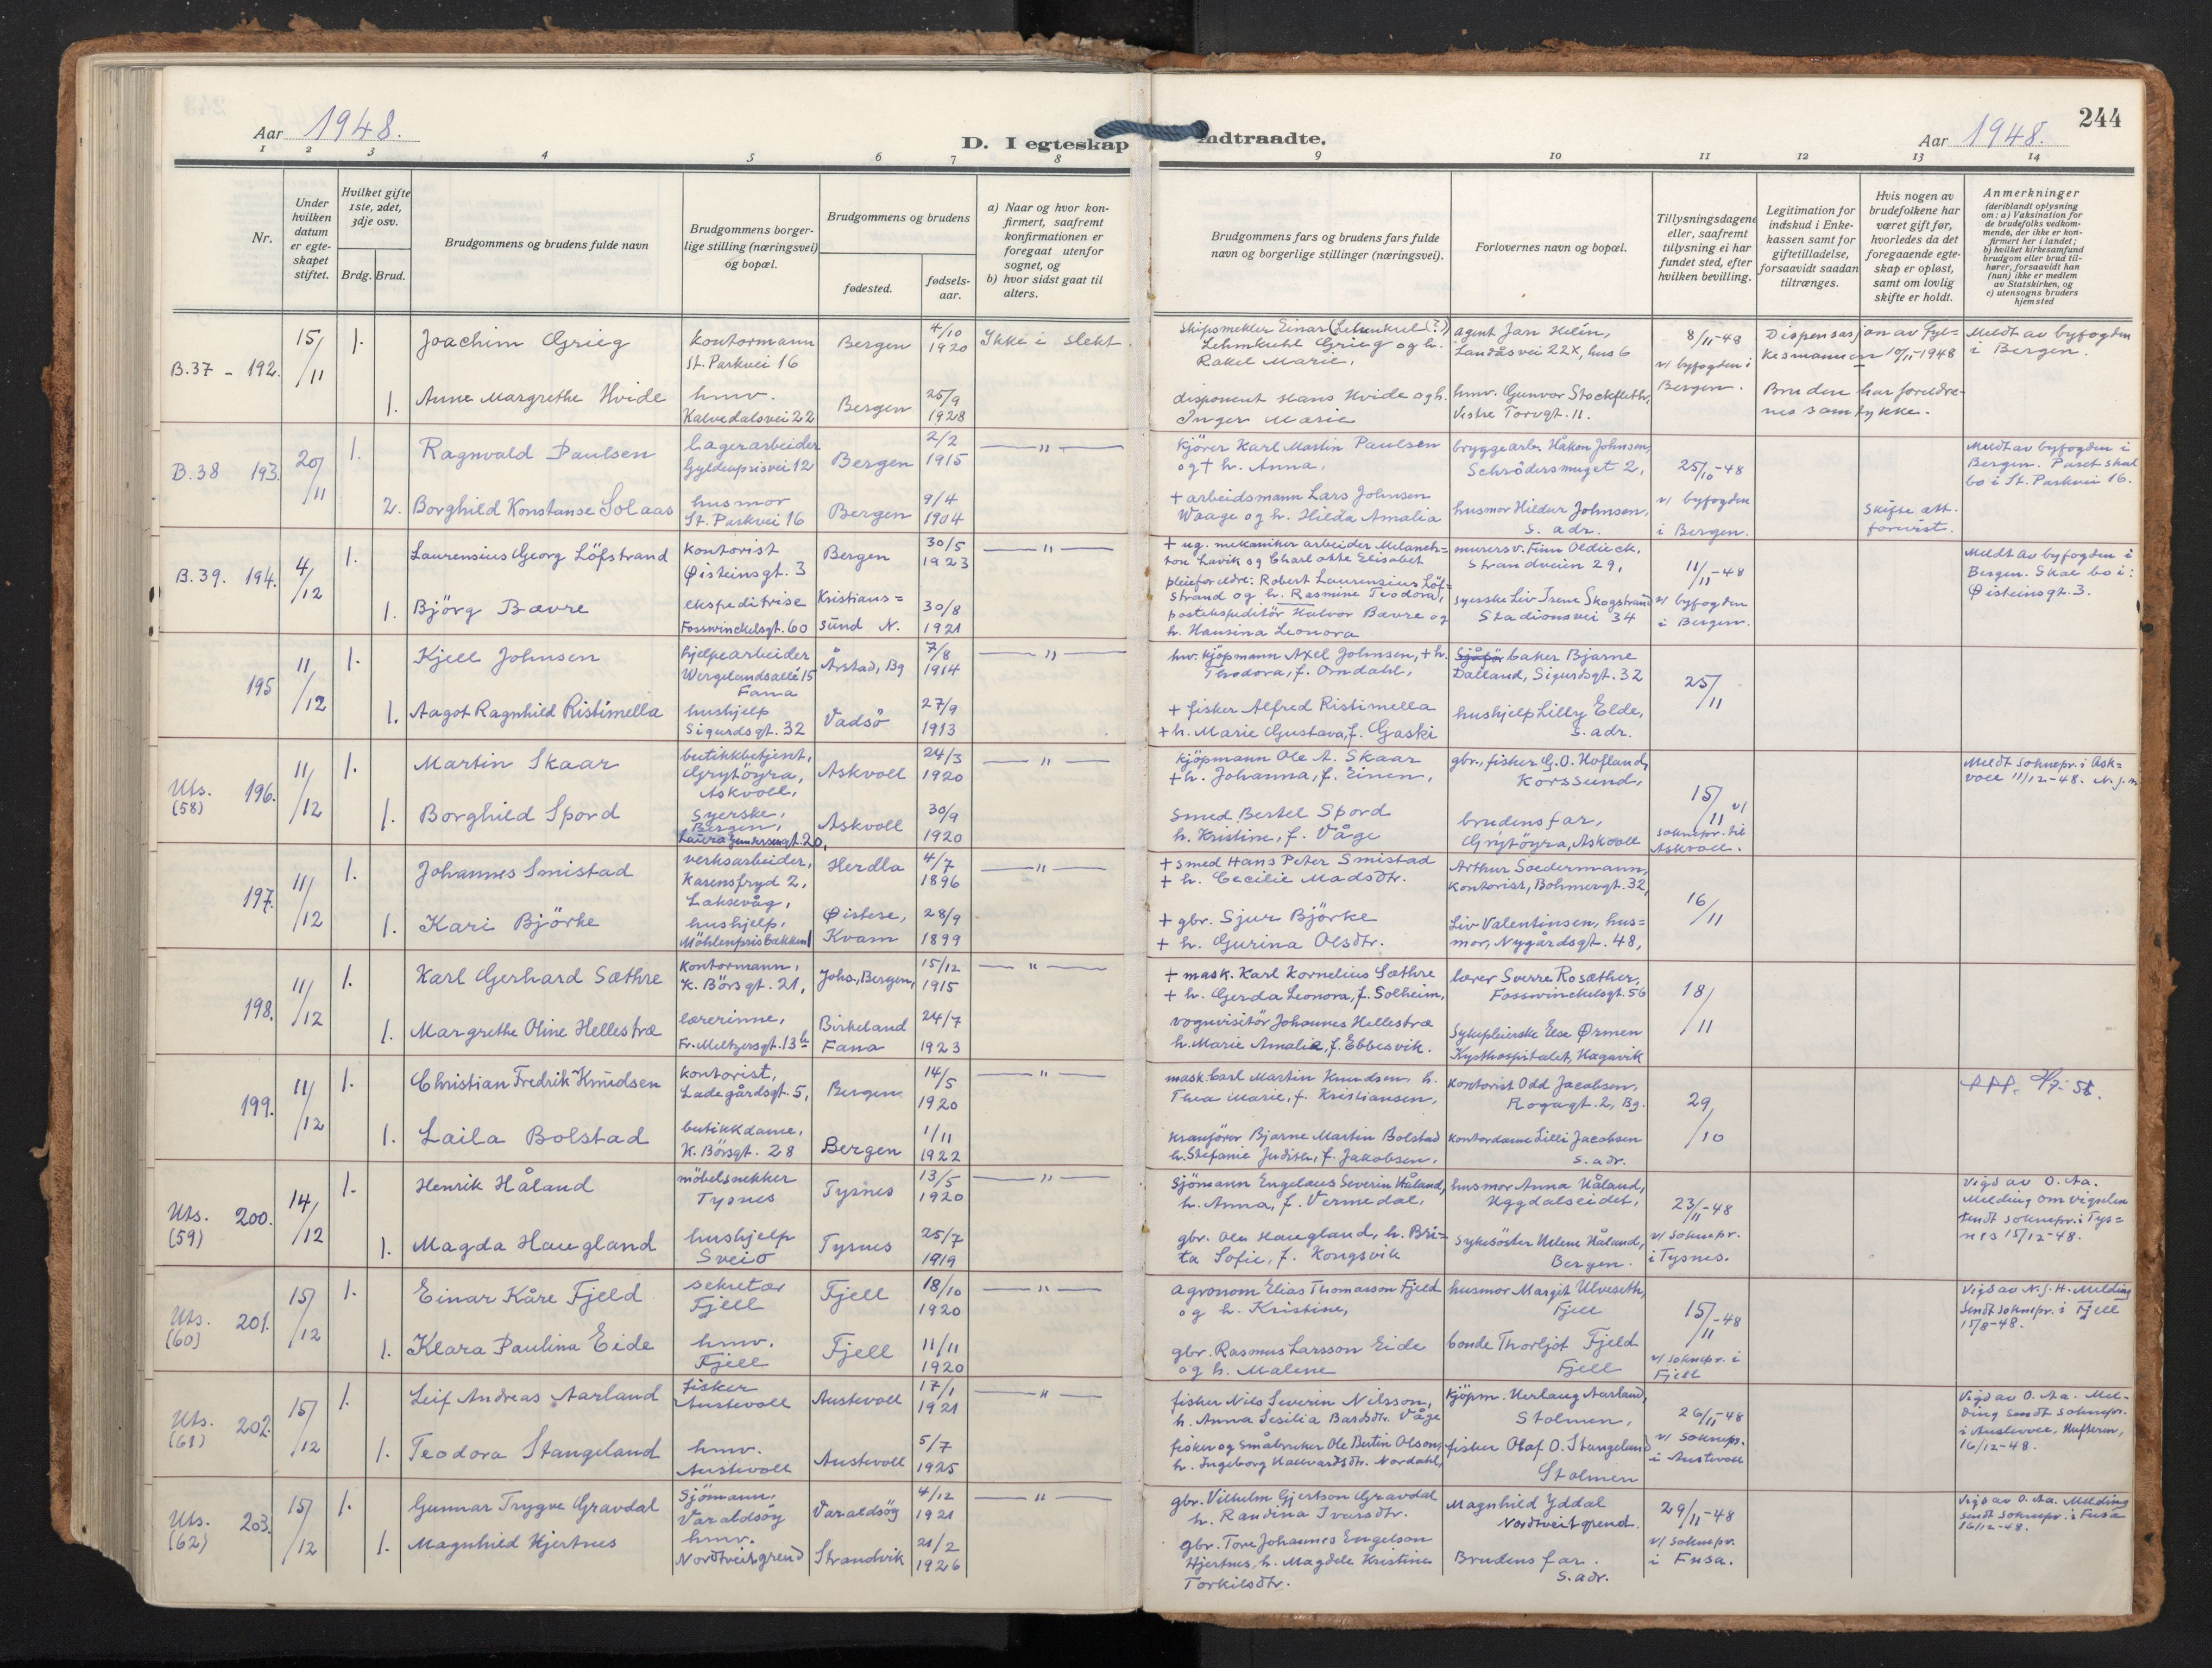 Aar 1948.
D. I egteskap indtraadte.
Aar 1948.
244
1 2 3 4 5 6 7 8 9 10 11 12 13 14
Nr.
Under hvilken datum er egteskapet stiftet.
Hvilket gifte 1ste, 2det, 3dje osv.
Brdg. Brud.
Brudgommens og brudens fulde navn
Brudgommens borgerlige stilling (næringsvei) og bopæl.
Brudgommens og brudens
fødested.
fødselsaar.
a) Naar og hvor konfirmert, saafremt konfirmationen er foregaat utenfor sognet, og
b) hvor sidst gaat til alters.
Brudgommens fars og brudens fars fulde navn og borgerlige stillinger (næringsvei).
Forlovernes navn og bopæl.
Tillysningsdagene eller, saafremt tillysning ei har fundet sted, efter hvilken bevilling.
Legitimation for indskud i Enkekassen samt for giftetilladelse, forsaavidt saadan tiltrænges.
Hvis nogen av brudefolkene har været gift før, hvorledes da det foregaaende egteskap er opløst, samt om lovlig skifte er holdt.
Anmerkninger
(deriblandt oplysning om: a) Vaksination for de brudefolks vedkommende, der ikke er konfirmert her i landet;
b) hvilket kirkesamfund brudgom eller brud tilhører, forsaavidt han (hun) ikke er medlem av Statskirken, og
c) utensogns bruders hjemsted
B.37 - 192. 15/11 1. Joachim Grieg kontormann St. Parkvei 16 Bergen 4/10 1920 Ikke i slekt.
skipsmekler Einar (Lehmkuhl (?)) Lehmkuhl Grieg og h. Rakel Marie,
agent Jan Helén, Landåsvei 22X, hus 6
8/11-48 v/ byfogden i Bergen.
Dispensasjon av Fylkesmannen 10/11-1948
Meldt av byfogden i Bergen.
1. Anne Margrethe Hvide hmv. Kalvedalsvei 22 Bergen 25/9 1928
disponent Hans Hvide og h. Inger Marie
hmv. Gunvor Stockfleth, Vestre Torvgt. 11.
Bruden har foreldrenes samtykke.
B.38 193. 20/11 1. Ragnvald Paulsen lagerarbeider Gyldenprisvei 12 Bergen 2/2 1915 — " —
kjörer Karl Martin Paulsen og + h. Anna,
bryggearb. Håkon Johnsen, Schrödersmuget 2,
25/10-48 v/ byfogden i Bergen.
Meldt av byfogden i Bergen. Paret skal bo i St. Parkvei 16.
2. Borghild Konstanse Solaas husmor St. Parkvei 16 Bergen 9/4 1904
+ arbeidsmann Lars Johnsen Waage og h. Hilda Amalia
husmor Hildur Johnsen, s. adr.
Skifte att. forevist.
B.39. 194. 4/12 1. Laurensius Georg Löfstrand kontorist Øisteinsgt. 3 Bergen 30/5 1923 — " —
+ ug. mekaniker arbeider Melanchton Lavik og Charlotte Elisabet
pleieforeldre: Robert Laurensius Löfstrand og h. Rasmine Teodora,
murersv. Finn Oldieck, Strandveien 29,
11/11-48 v/ byfogden i Bergen.
Meldt av byfogden i Bergen. Skal bo i: Øisteinsgt. 3.
1. Björg Bævre ekspeditrise Fosswinckelsgt. 60 Kristianssund N. 30/8 1921
postekspeditör Halvor Bævre og h. Hansina Leonora
syerske Liv Irene Skogstrand Stadionsvei 34
195 11/12 1. Kjell Johnsen hjelpearbeider Wergelandsallé 15 Fana Årstad, Bg 7/8 1914 — " —
hv. kjöpmann Axel Johnsen, + h. Theodora, f. Omdahl,
baker Bjarne Dalland, Sigurdsgt. 32
25/11
1. Aagot Ragnhild Ristimella hushjelp Sigurdsgt. 32 Vadsö 27/9 1913
+ fisker Alfred Ristimella + h. Marie Gustava, f. Gaski
hushjelp Lilly Elde, s. adr.
Uts. (58) 196. 11/12 1. Martin Skaar butikkbetjent, Grytöyra, Askvoll, Askvoll 24/3 1920 — " —
kjöpmann Ole A. Skaar + h. Johanna, f. Einen,
gbr., fisker G.O. Hofland, Korssund,
15/11 v/ soknepr. til Askvoll.
Meldt soknepr. i Askvoll 11/12-48. N.J.H.
1. Borghild Spord Syerske, Bergen, Laura Gundersensgt. 20, Askvoll 30/9 1920
Smed Bertel Spord h. Kristine, f. Våge
brudens far, Grytöyra, Askvoll
197. 11/12 1. Johannes Smistad verksarbeider, Karensfryd 2, Laksevåg, Herdla 4/7 1896 — " —
+ smed Hans Peter Smistad + h. Cecilie Madsdtr.
Arthur Soedermann, kontorist, Bohmersgt. 32,
16/11
1. Kari Björke hushjelp, Möhlenprisbakken 1 Øistese, Kvam 28/9 1899
+ gbr. Sjur Björke + h. Gurina Olsdtr.
Liv Valentinsen, husmor, Nygårdsgt. 48,
198. 11/12 1. Karl Gerhard Sæthre kontormann, K. Börsgt. 21, Johs., Bergen, 15/12 1915 — " —
+ mask. Karl Kornelius Sæthre + h. Gerda Leonora, f. Solheim,
lærer Sverre Rosæther, Fosswinckelsgt. 56
18/11
1. Margrethe Oline Hellestræ lærerinne, Fr. Meltzersgt. 13 b Birkeland Fana 24/7 1923
vognvisitör Johannes Hellestræ h. Marie Amalie, f. Ebbesvik.
Sykepleierske Else Ørmen Kysthospitalet, Hagavik
199. 11/12 1. Christian Fredrik Knudsen kontorist, Ladegårdsgt. 5, Bergen 14/5 1920 — " —
mask. Carl Martin Knudsen, h. Thea Marie, f. Kristiansen,
kontorist Odd Jacobsen, Rogagt. 2, Bg.
29/10
1. Laila Bolstad butikkdame, K. Börsgt. 28 Bergen 1/11 1922
kranförer Bjarne Martin Bolstad h. Stefanie Judith, f. Jakobsen,
kontordame Lilli Jacobsen s. adr.
Uts. (59) 200. 14/12 1. Henrik Håland möbelsnekker Tysnes Tysnes 13/5 1920 — " —
Sjömann Engelaus Severin Håland, h. Anna, f. Vermedal,
husmor Anna Håland, Uggdalseidet,
23/11-48 v/ soknepr. i Tysnes.
Vigd av O. Aa. Melding om vigselen sendt soknepr. i Tysnes 15/12-48.
1. Magda Haugland hushjelp Sveio Tysnes 25/7 1919
gbr. Ole Haugland, h. Brita Sofie, f. Kongsvik
Sykesöster Helene Håland, Bergen.
Uts. (60) 201. 15/12 1. Einar Kåre Fjeld sekretær Fjell Fjell 18/10 1920 — " —
agronom Elias Thomasson Fjeld og h. Kristine,
husmor Margit Ulveseth, Fjell
15/11-48 v/ soknepr. i Fjell
Vigd av N.J.H. Melding sendt soknepr. i Fjell 15/8-48.
1. Klara Paulina Eide hmv. Fjell Fjell 11/11 1920
gbr. Rasmus Larsson Eide og h. Malene
bonde Thorljot Fjeld Fjell
Uts. (61) 202. 15/12 1. Leif Andreas Aarland fisker Austevoll Austevoll 17/1 1921 — " —
fisker Nils Severin Nilsson, h. Anna Sesilia Bardsdtr. Våge
kjöpm. Herlaug Aarland, Stolmen,
26/11-48 v/ soknepr. i Austevoll
Vigd av O. Aa. Melding sendt soknepr. i Austevoll, Hufteren, 16/12-48.
1. Teodora Stangeland hmv. Austevoll Austevoll 5/7 1925
fisker og småbruker Ole Bertin Olson, h. Ingeborg Hallvardsdtr. Nordahl,
fisker Olaf O. Stangeland Stolmen
Uts. (62) 203. 15/12 1. Gunnar Trygve Gravdal Sjömann, Varaldsöy Varaldsöy 4/12 1921 — " —
gbr. Vilhelm Gjertson Gravdal h. Randina Ivarsdtr.
Magnhild Yddal Nordtveitgrend.
29/11-48 v/ soknepr. i Fusa.
Vigd av O. Aa. Melding sendt soknepr. i Fusa 16/12-48.
1. Magnhild Hjertnes hmv. Nordtveitgrend Strandvik 21/2 1926
gbr. Tore Johannes Engelson Hjertnes, h. Magdele Kristine Torkilsdtr.
Brudens far. s. adr.